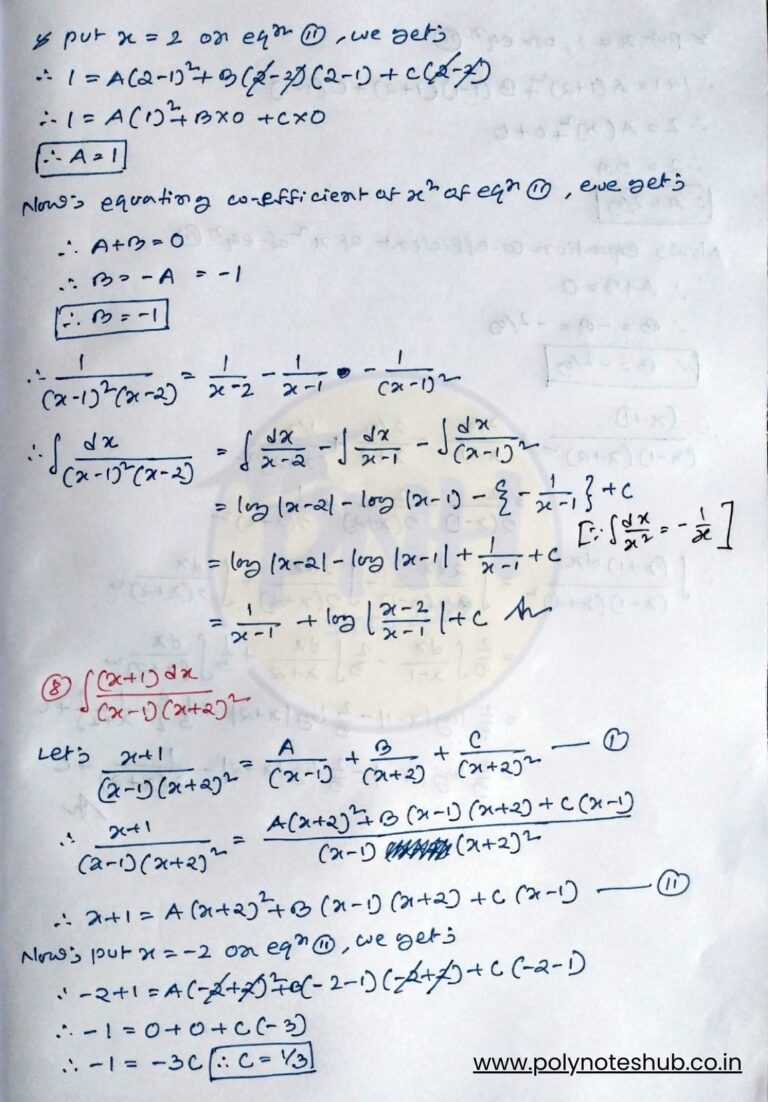 & put x = 2 on eqn (11), we get;
∴ 1 = A(2-1)² + B(2-2)(2-1) + C(2-2)
∴ 1 = A(1)² + B×0 + C×0
∴ A = 1
Now; equating co-efficient of x² of eqn (11), we get;
∴ A+B = 0
∴ B = -A = -1
∴ B = -1
∴ 1/((x-1)²(x-2)) = 1/(x-2) - 1/(x-1) - 1/(x-1)²
∴ ∫ dx/((x-1)²(x-2)) = ∫ dx/(x-2) - ∫ dx/(x-1) - ∫ dx/(x-1)²
= log |x-2| - log |x-1) - {- 1/(x-1)} + C
[∵ ∫ dx/x² = - 1/x]
= log |x-2| - log |x-1| + 1/(x-1) + C
= 1/(x-1) + log |(x-2)/(x-1)| + C An
(8) ∫ (x+1) dx/((x-1)(x+2)²)
Let; (x+1)/((x-1)(x+2)²) = A/(x-1) + B/(x+2) + C/(x+2)² — (1)
∴ (x+1)/((x-1)(x+2)²) = (A(x+2)² + B(x-1)(x+2) + C(x-1))/((x-1)(x+2)²)
∴ x+1 = A(x+2)² + B(x-1)(x+2) + C(x-1) — (11)
Now; put x = -2 on eqn (11), we get;
∴ -2+1 = A(-2+2)² + B(-2-1)(-2+2) + C(-2-1)
∴ -1 = 0+0+C(-3)
∴ -1 = -3C ∴ C = 1/3
PNH
www.polynoteshub.co.in